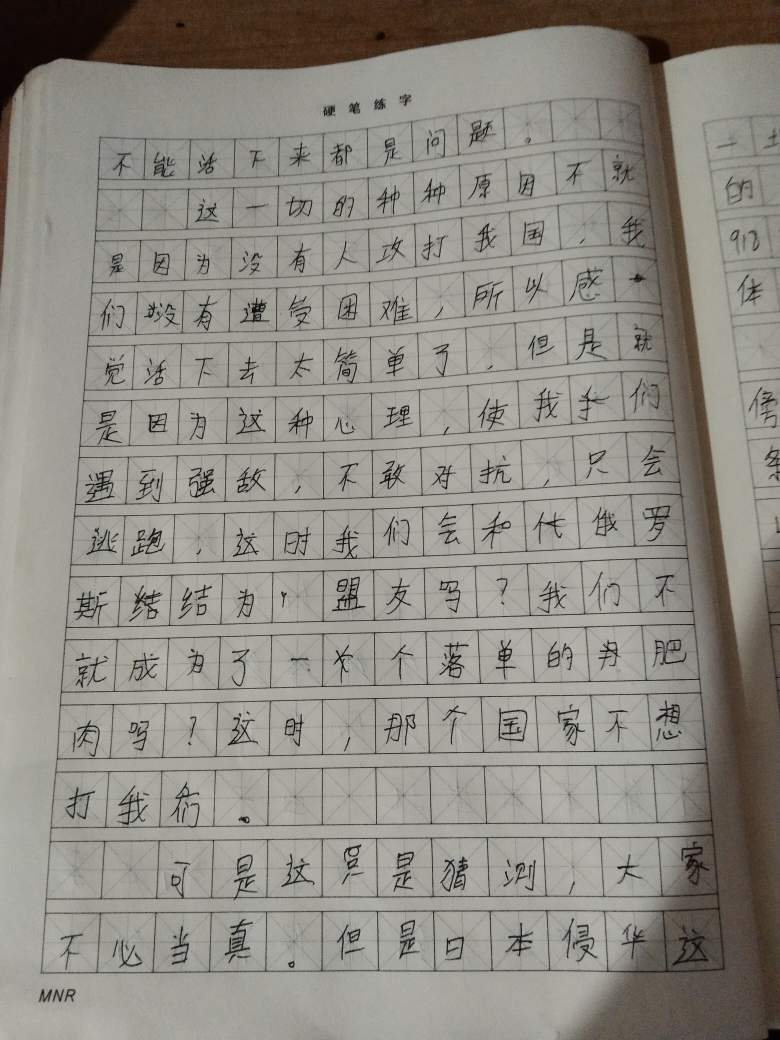 硬笔练字
不能活下来都是问题。
这一切的种种原因不就
是因为没有人攻打我国，我
们没有遭受困难，所以感
觉活下去太简单了，但是就
是因为这种心理，使我们
遇到强敌，不敢对抗，只会
逃跑，这时我们会和俄罗
斯结为盟友吗？我们不
就成为了一个落单的肥
肉吗？这时，那个国家不想
打我们。
可是这只是猜测，大家
不必当真。但是日本侵华这
MNR
一
的
918
体